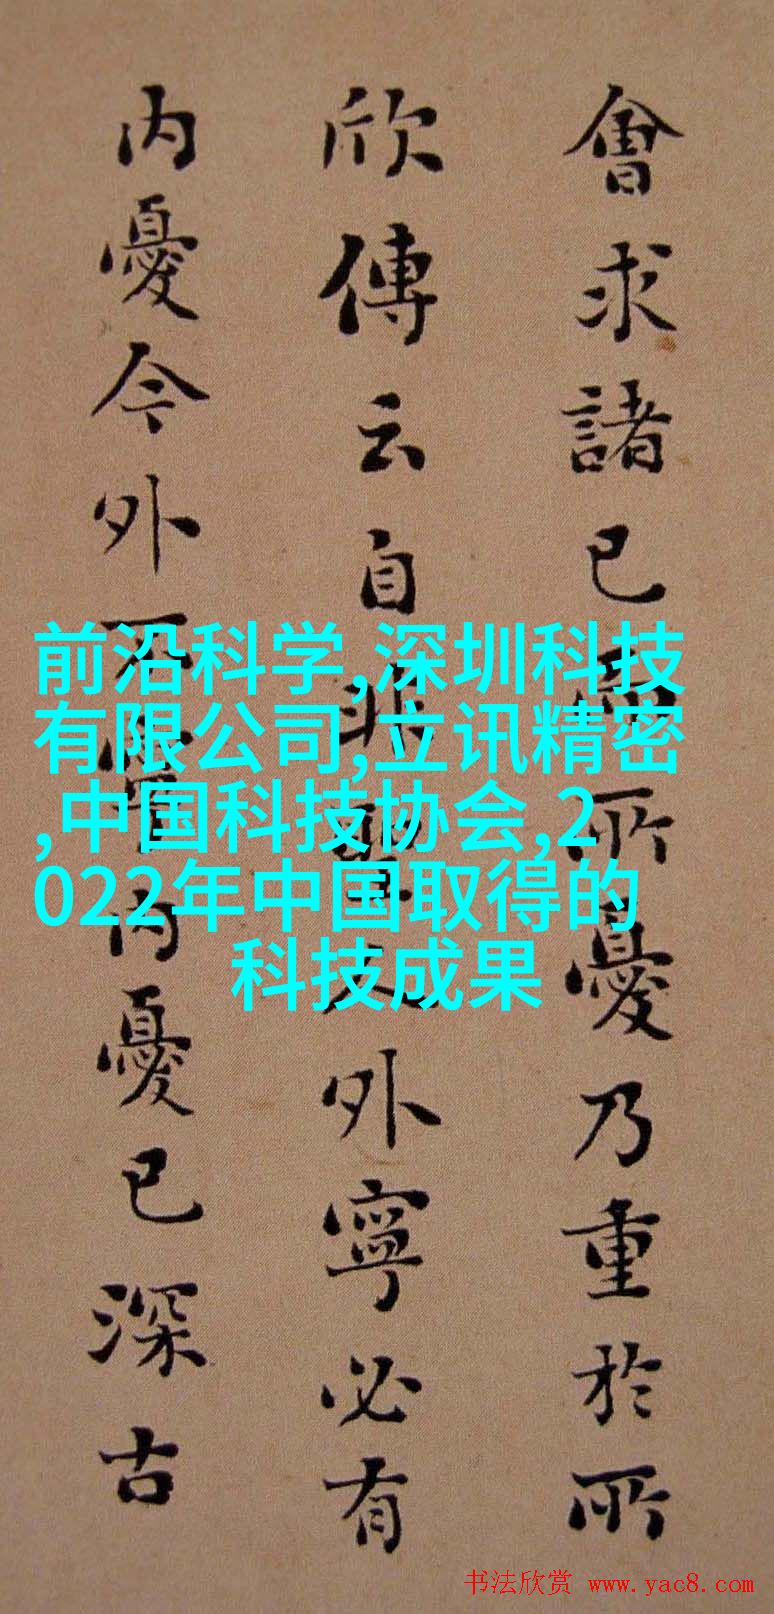 會求諸已而所憂乃重於所
欣傳云自非聖人外寧必有
内憂今外不寧内憂已深古
前沿科学,深圳科技
有限公司,立讯精密
,中国科技协会,2
022年中国取得的
科技成果
书法欣赏 www.yac8.com